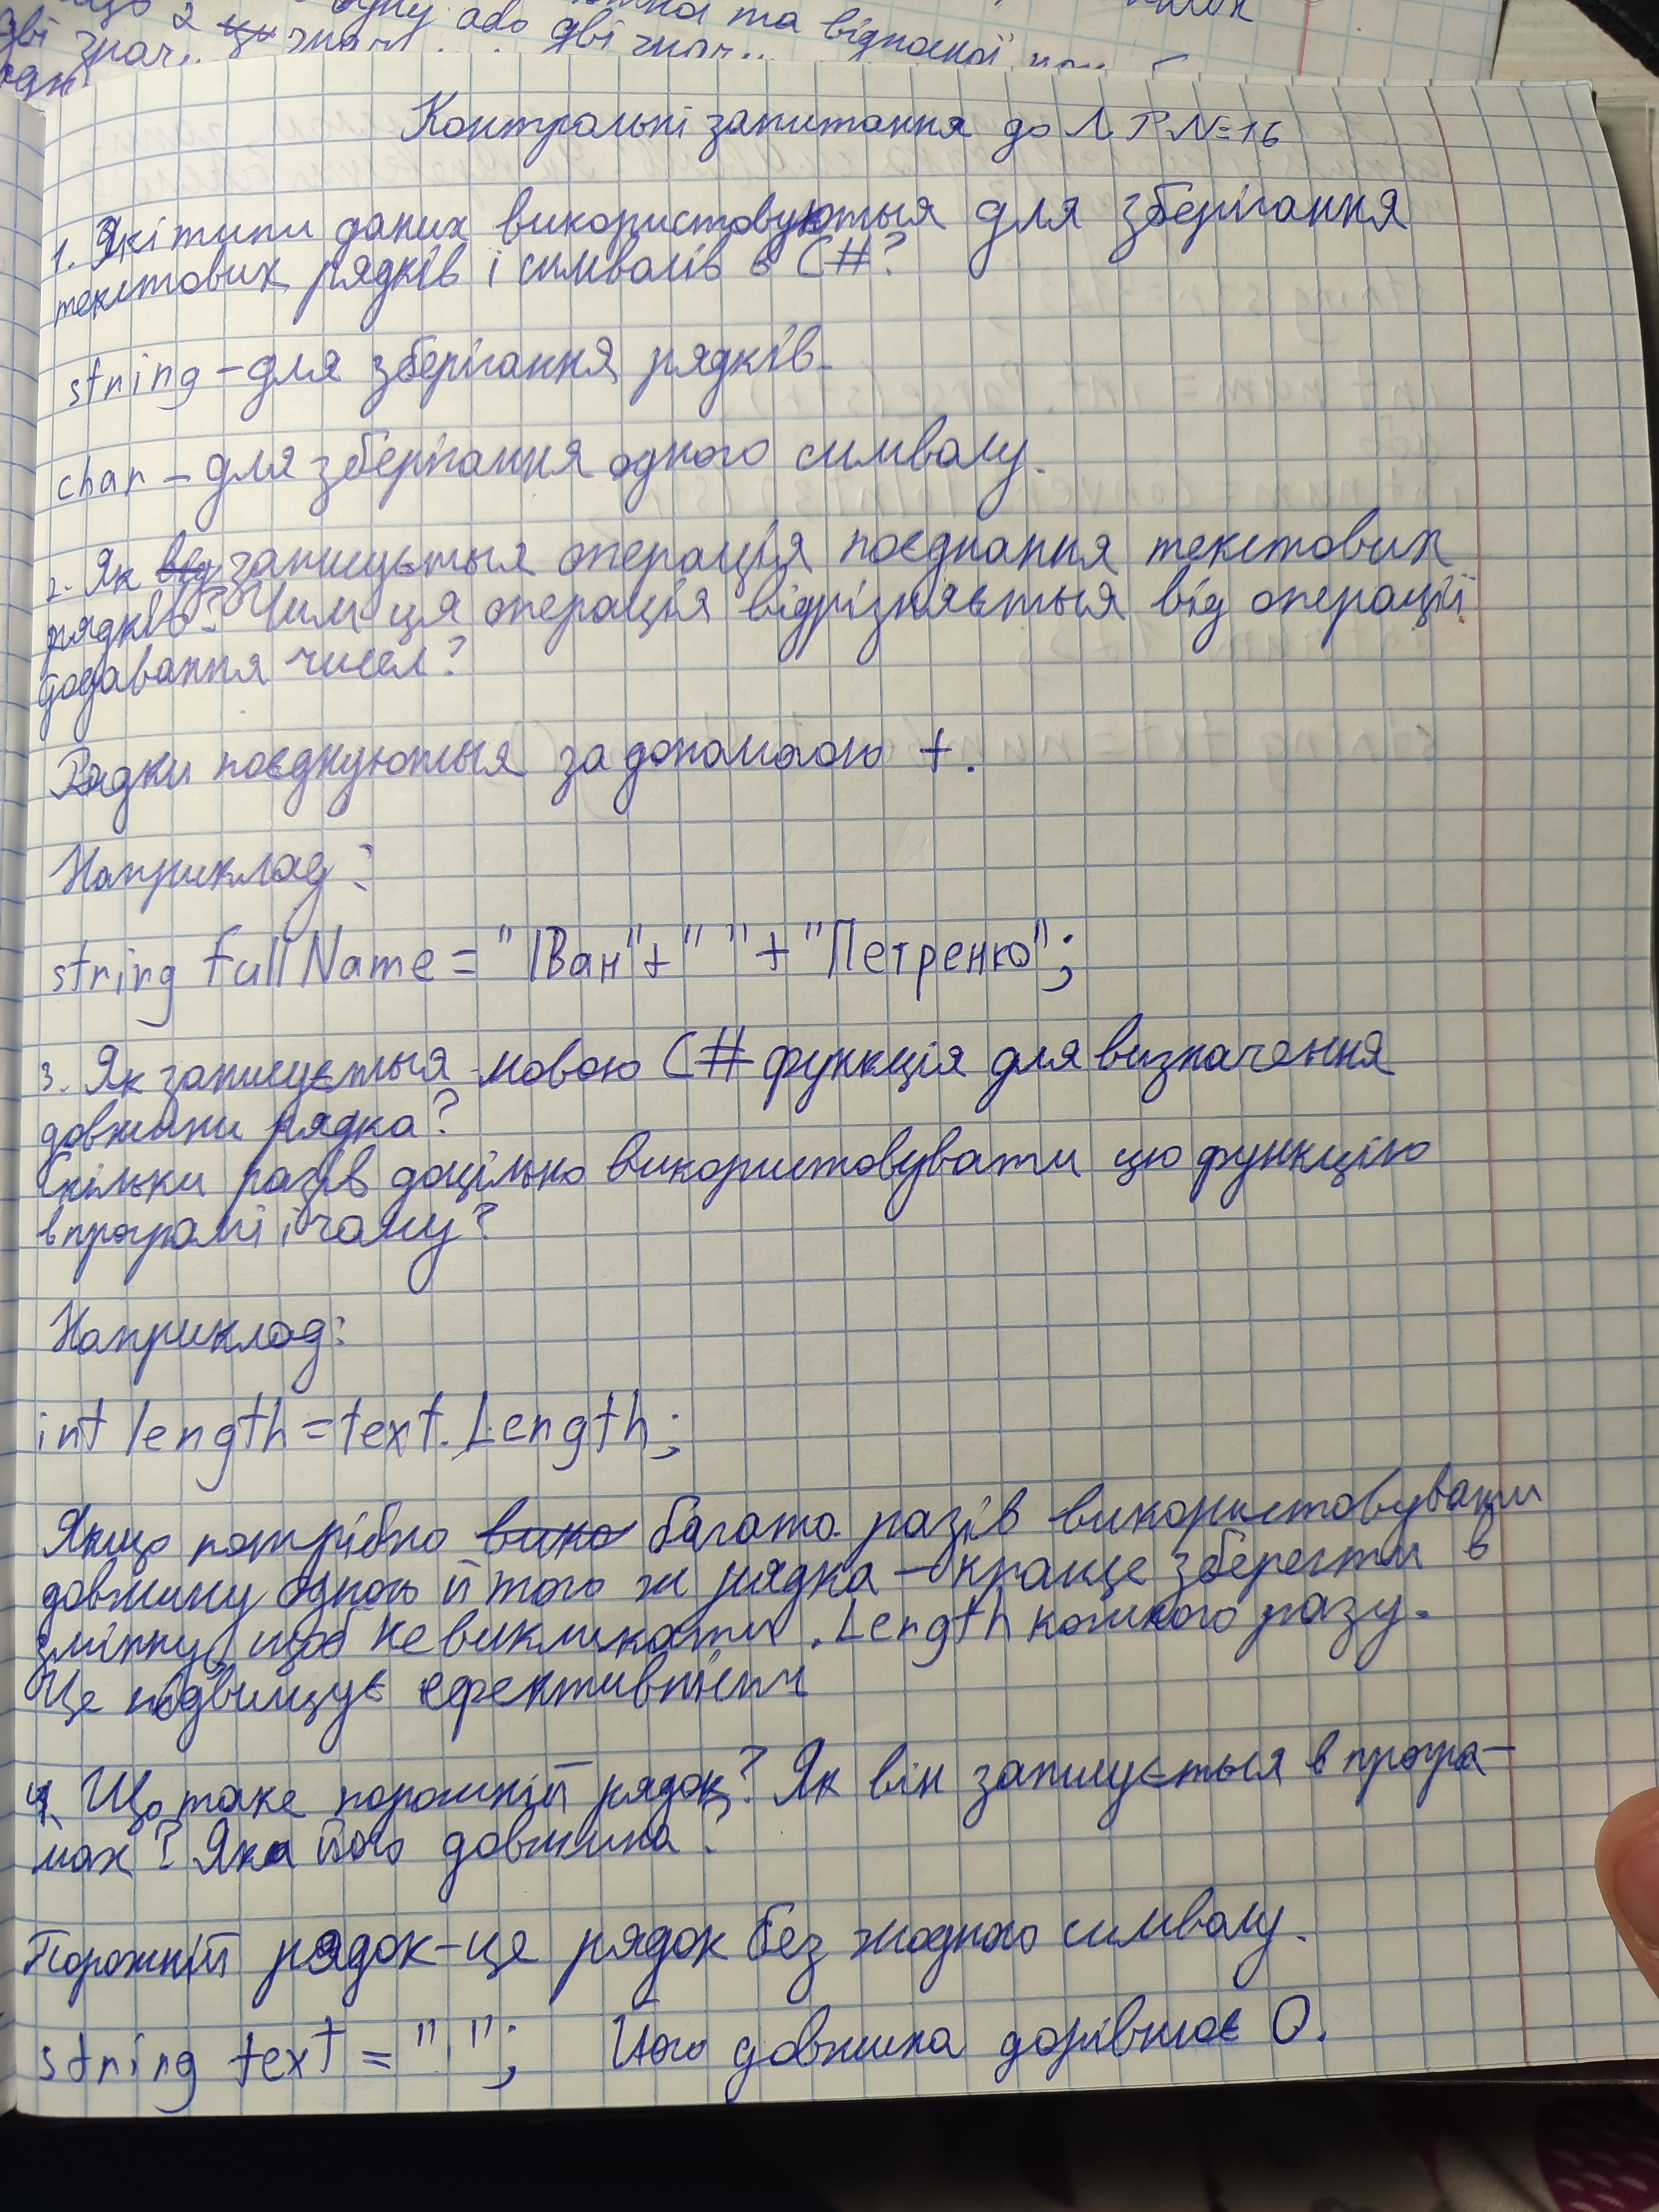 2
одну або
та відносної
дві знач.. знач.... дві знач..
Контрольні запитання до ЛР №=16
1. Які типи даних використовуються для зберігання
текстових рядків і символів в C#?
string – для зберігання рядків.
char – для зберігання одного символу.
2. Як від записується операція поєднання текстових
рядків? Чим ця операція відрізняється від операції
додавання чисел?
Рядки поєднуються за допомогою +.
Наприклад:
string fullName = "Іван"+" "+"Петренко";
3. Як записується мовою C# функція для визначення
довжини рядка?
Скільки разів доцільно використовувати цю функцію
в програмі і чому?
Наприклад:
int length = text.Length;
Якщо потрібно вико багато разів використовувати
довжину одного й того ж рядка – краще зберегти в
змінну, щоб не викликати .Length кожного разу.
Це підвищує ефективність
4. Що таке порожній рядок? Як він записується в програ-
мах? Яка його довжина?
Порожній рядок – це рядок без жодного символу.
string text = " "; Його довжина дорівнює 0.